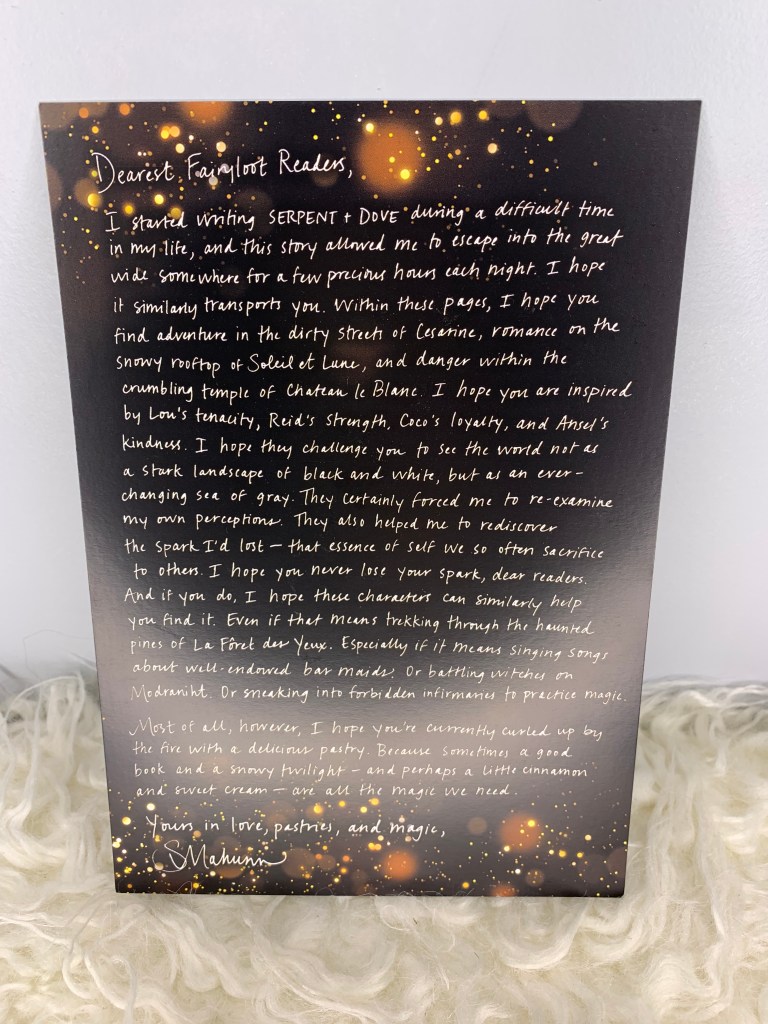 Dearest Fairyloot Readers,
I started writing SERPENT + DOVE during a difficult time
in my life, and this story allowed me to escape into the great
wide somewhere for a few precious hours each night. I hope
it similarly transports you. Within these pages, I hope you
find adventure in the dirty streets of Cesarine, romance on the
snowy rooftop of Soleil et Lune, and danger within the
crumbling temple of Chateau le Blanc. I hope you are inspired
by Lou's tenacity, Reid's strength, Coco's loyalty, and Ansel's
kindness. I hope they challenge you to see the world not as
a stark landscape of black and white, but as an ever-
changing sea of gray. They certainly forced me to re-examine
my own perceptions. They also helped me to rediscover
the spark I'd lost — that essence of self we so often sacrifice
to others. I hope you never lose your spark, dear readers.
And if you do, I hope these characters can similarly help
you find it. Even if that means trekking through the haunted
pines of La Fôret des Yeux. Especially if it means singing songs
about well-endowed bar maids. Or battling witches on
Modraniht. Or sneaking into forbidden infirmaries to practice magic.
Most of all, however, I hope you're currently curled up by
the fire with a delicious pastry. Because sometimes a good
book and a snowy twilight — and perhaps a little cinnamon
and sweet cream — are all the magic we need.
Yours in love, pastries, and magic,
SMahurin